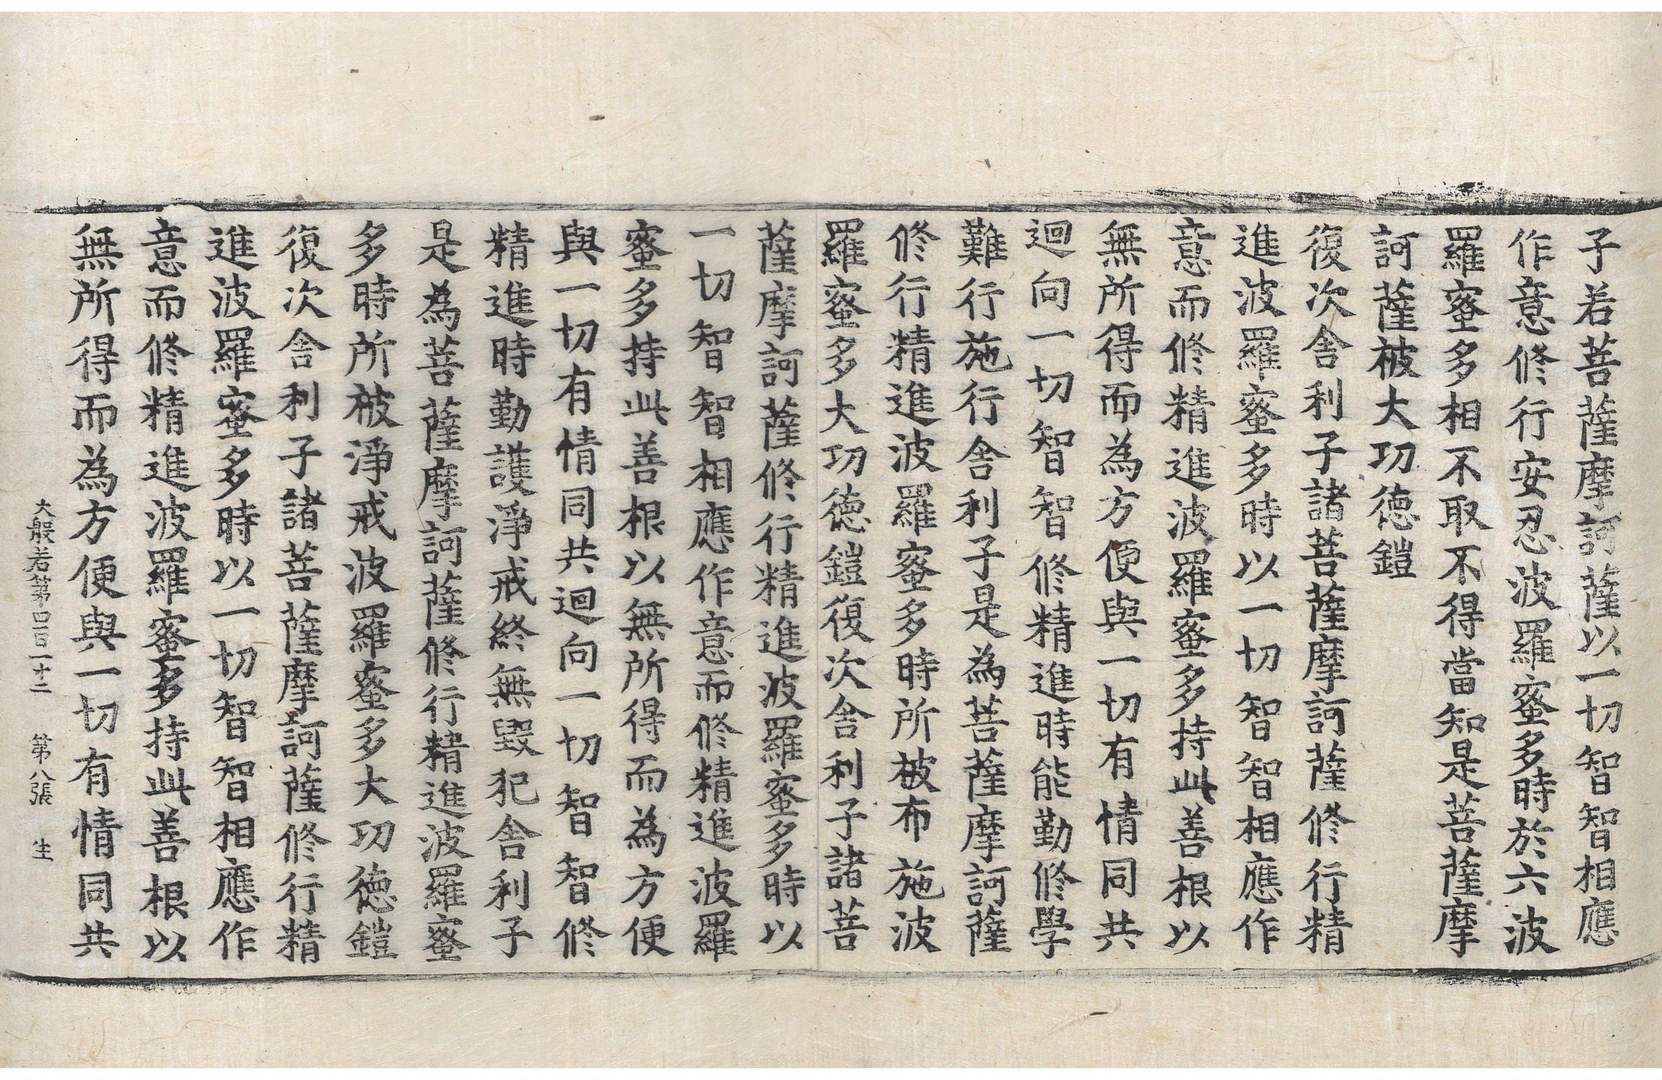 子若菩薩摩訶薩以一切智智相應
作意修行安忍波羅蜜多時於六波
羅蜜多相不取不得當知是菩薩摩
訶薩被大功德鎧
復次舍利子諸菩薩摩訶薩修行精
進波羅蜜多時以一切智智相應作
意而修精進波羅蜜多持此善根以
無所得而為方便與一切有情同共
迴向一切智智修精進時能勤修學
難行施行舍利子是為菩薩摩訶薩
修行精進波羅蜜多時所被布施波
羅蜜多大功德鎧復次舍利子諸菩
薩摩訶薩修行精進波羅蜜多時以
一切智智相應作意而修精進波羅
蜜多持此善根以無所得而為方便
與一切有情同共迴向一切智智修
精進時勤護淨戒終無毀犯舍利子
是為菩薩摩訶薩修行精進波羅蜜
多時所被淨戒波羅蜜多大功德鎧
復次舍利子諸菩薩摩訶薩修行精
進波羅蜜多時以一切智智相應作
意而修精進波羅蜜多持此善根以
無所得而為方便與一切有情同共
大般若第四百一十二 第八張 生